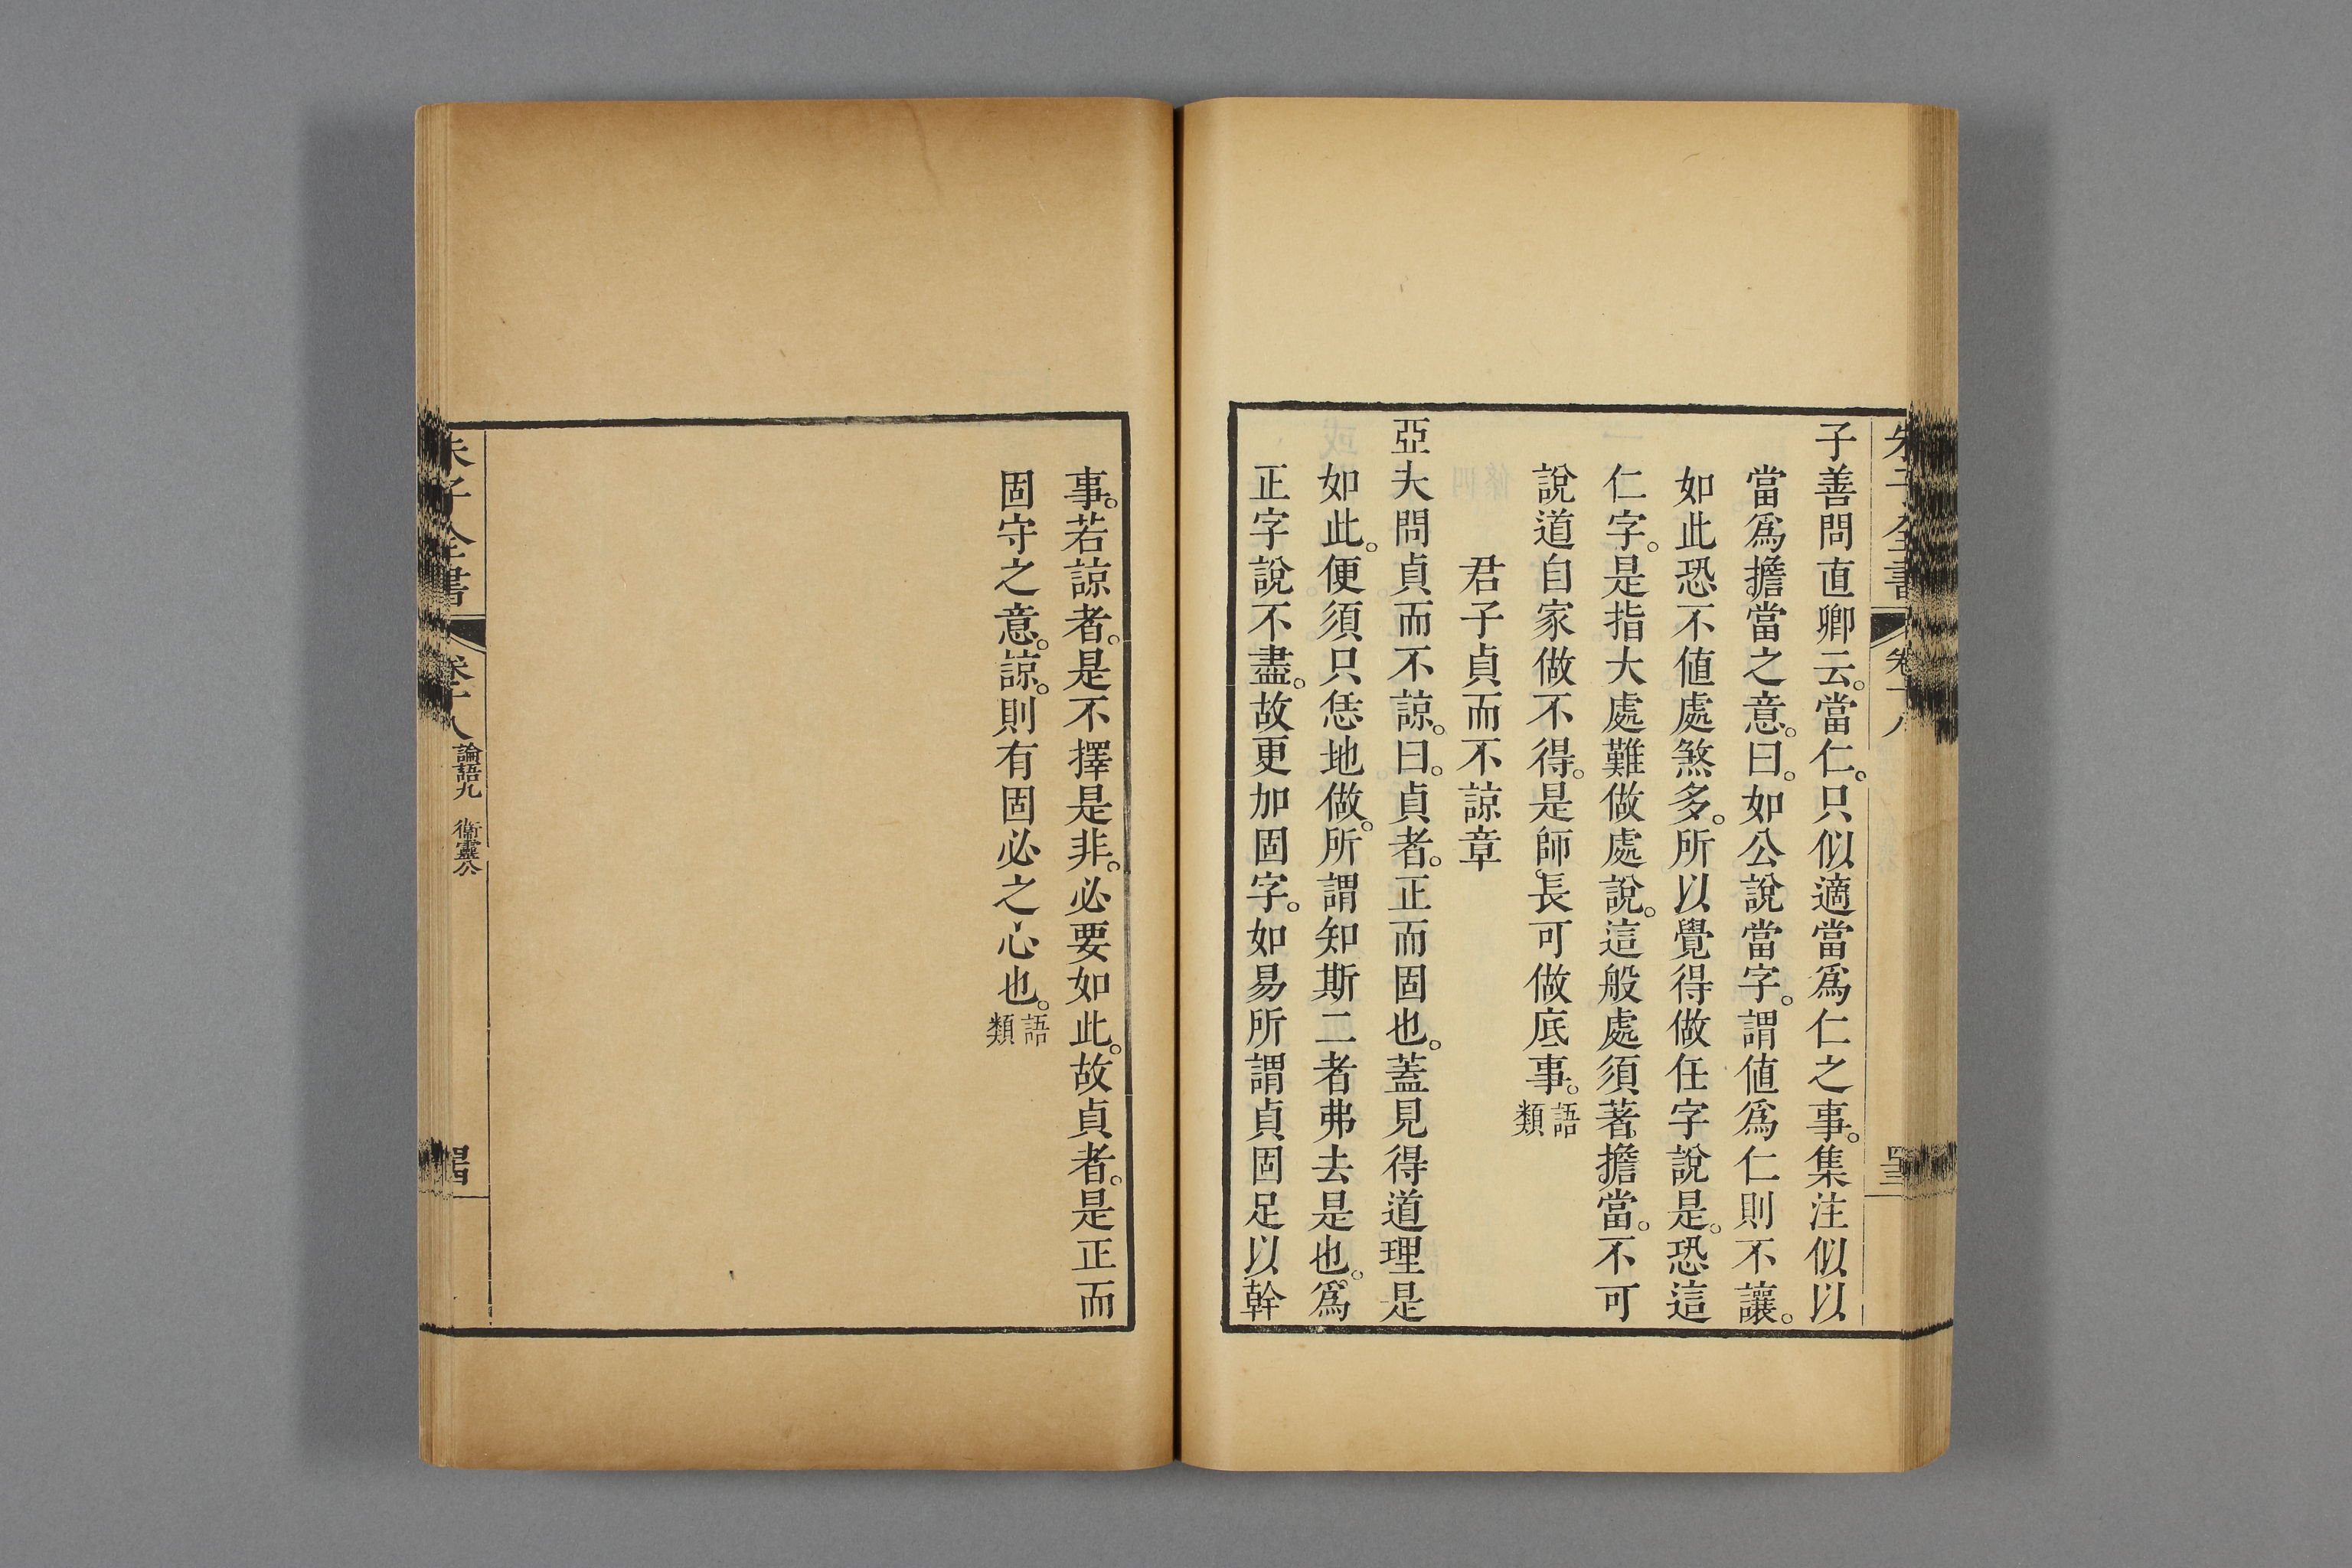 朱子全書 卷十八
子善問直卿云。當仁。只似適當爲仁之事。集注似以
當爲擔當之意。曰。如公說當字。謂値爲仁則不讓。
如此恐不値處煞多。所以覺得做任字說是。恐這
仁字。是指大處難做處說。這般處須著擔當。不可
說道自家做不得。是師長可做底事。語類
君子貞而不諒章
亞夫問貞而不諒。曰。貞者。正而固也。蓋見得道理是
如此。便須只恁地做。所謂知斯二者弗去是也。爲
正字說不盡。故更加固字。如易所謂貞固足以幹
事。若諒者。是不擇是非。必要如此。故貞者。是正而
固守之意。諒。則有固必之心也。語類
朱子全書 卷十八 論語九 衞靈公